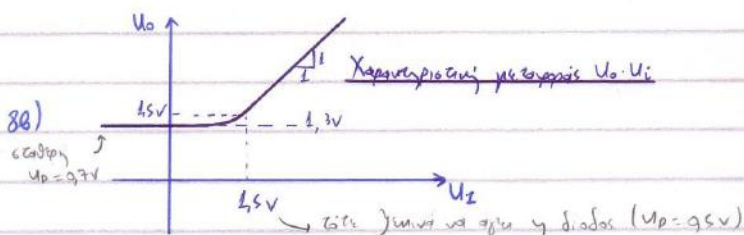 U₀
1
1
Χαρακτηριστική μεταφοράς U₀-Uᵢ
1,5V
8β)
1,3V
σταθερή
U_D=0,7V
U_I
1,5V
τότε ξεκινά να άγει η δίοδος (U_D=0,5V)